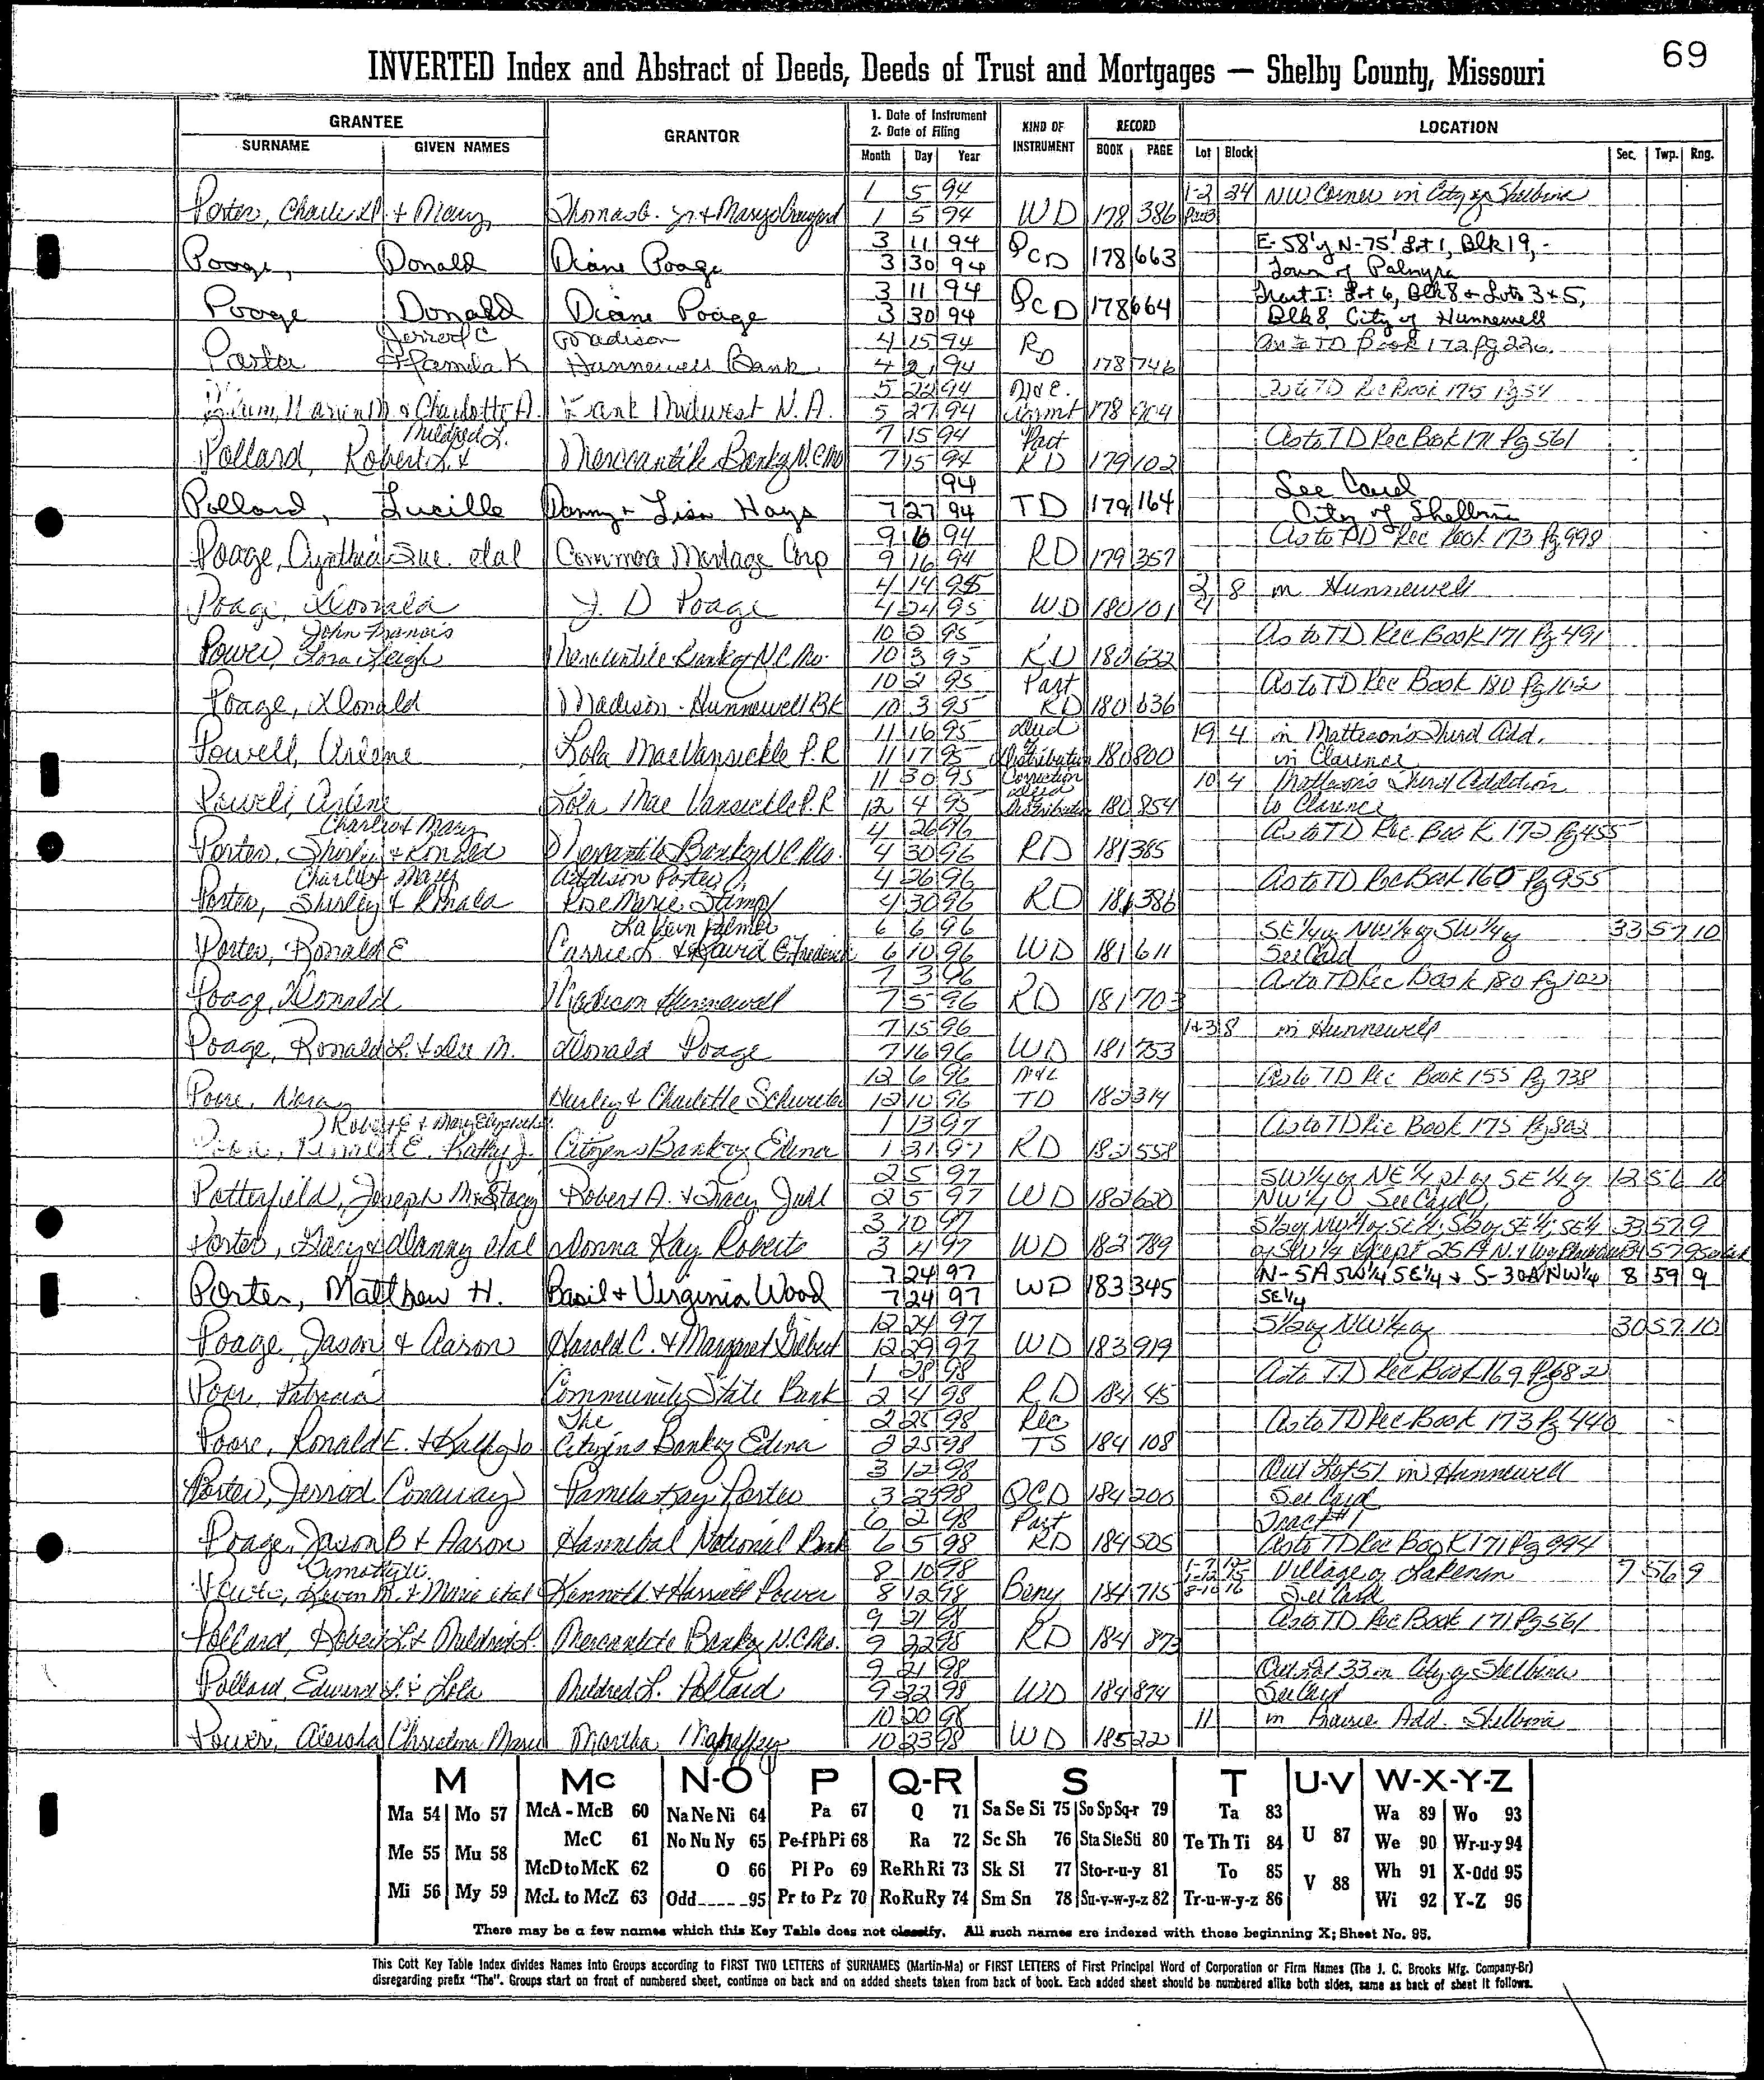 69
INVERTED Index and Abstract of Deeds, Deeds of Trust and Mortgages — Shelby County, Missouri
GRANTEE
SURNAME GIVEN NAMES
GRANTOR
1. Date of Instrument
2. Date of Filing
Month Day Year
KIND OF INSTRUMENT
RECORD
BOOK PAGE
LOCATION
Lot Block Sec. Twp. Rng.
1 5 94 1-2 24 NW Corner in City of Shelbina
Porter, Charles & Mary 1 5 94 WD 178 386
3 11 94 E-58' of N-75' Lot 1, Blk 19, -
Poage, Donald Diane Poage 3 30 94 QCD 178 663 Town of Palmyra
3 11 94 Tract I: Lot 6, Blk 8 & Lots 3 & 5,
Poage Donald Diane Poage 3 30 94 QCD 178 664 Blk 8 City of Hunnewell
Jerrod C Madison 4 15 94 as to TD Book 172 Pg 226.
Porter & Pamela K Hunnewell Bank 4 21 94 RD 178 746
5 22 94 as to TD Rec Book 175 Pg 54
& Charlotte A. Bank Midwest N.A. 5 27 94 178 904
Mildred L. 7 15 94 Part As to TD Rec Book 171 Pg 561
Pollard, Robert L. & Mercantile Bank of N.C. Mo 7 15 94 RD 179 102
94 See Card
Pollard, Lucille Danny & Lisa Hays 7 27 94 TD 179 164 City of Shelbina
9 6 94 As to TD Rec Book 173 Pg 998
Poage, Cynthia Sue etal Commerce Mortgage Corp 9 16 94 RD 179 357
4 14 95 8 in Hunnewell
Poage, Donald J. D Poage 4 24 95 WD 180 101 4
John Francis 10 2 95 As to TD Rec Book 171 Pg 491
Power, Lora Leigh Mercantile Bank of N.C. Mo. 10 3 95 RD 180 632
10 2 95 Part As to TD Rec Book 180 Pg 102
Poage, Donald Madison-Hunnewell BK 10 3 95 RD 180 636
11 16 95 Deed 19 4 in Matteson's Third Add.
Powell, Arlene Lola Mae Vansickle P.R 11 17 95 of Distribution 180 800 in Clarence
11 30 95 Correction Deed 10 4 Matteson's Third Addition
Powell, Arlene Lola Mae Vansickle P.R 12 4 95 Distribution 180 854 to Clarence
Charles & Mary 4 26 96 As to TD Rec Book 172 Pg 455
Porter, Shirley & Ronald Mercantile Bank of N.C. Mo. 4 30 96 RD 181 385
Charles & Mary Addison Porter 4 26 96 As to TD Rec Book 160 Pg 955
Porter, Shirley & Ronald Rose Marie Stump 4 30 96 RD 181 386
LaVern Palmer 6 6 96 SE 1/4 of NW 1/4 of SW 1/4 of 33 57 10
Porter, Ronald E Carrie L. & David E. Frederick 6 10 96 WD 181 611 See Card
7 3 96 As to TD Rec Book 180 Pg 102
Poage, Donald Madison Hunnewell 7 5 96 RD 181 703
7 15 96 1+3 8 in Hunnewell
Poage, Ronald L. & Sue M. Donald Poage 7 16 96 WD 181 753
12 6 96 As to TD Rec Book 155 Pg 738
Hurley & Charlotte 12 10 96 TD 182 314
Robert E & Mary Elizabeth 1 13 97 As to TD Rec Book 175 Pg 802
Ronald E. Kathy J. Citizens Bank of Edina 1 31 97 RD 182 558
2 5 97 SW 1/4 of NE 1/4 pt of SE 1/4 of 12 56 10
Potterfield, Joseph M & Stacy Robert A. & Tracy Judl 2 5 97 WD 182 620 NW 1/4 See Card
3 10 97 S 1/2 of NW 1/4 of SE 1/4; S 1/2 of SE 1/4; SE 1/4 33 57 9
Porter, Gary & Danny etal Donna Kay Roberts 3 4 97 WD 182 789 of SW 1/4 except 25 A
7 24 97 N-5A SW 1/4 SE 1/4 & S-30A NW 1/4 8 59 9
Porter, Matthew H. Basil & Virginia Wood 7 24 97 WD 183 345 SE 1/4
12 24 97 S 1/2 of NW 1/4 of 30 57 10
Poage, Jason & Aaron Harold C. & Margaret Gilbert 12 29 97 WD 183 919
1 28 98 As to TD Rec Book 169 Pg 682
Poore, Patricia Community State Bank 2 4 98 RD 184 45
The 2 25 98 Rec As to TD Rec Book 173 Pg 440
Poore, Ronald E. & Kathy Jo Citizens Bank of Edina 2 25 98 TS 184 108
3 12 98 Out Lot 51 in Hunnewell
Porter, Jerrod Conaway Pamela Kay Porter 3 24 98 QCD 184 200 See Card
6 2 98 Part Tract #1
Poage, Jason B & Aaron Hannibal National Bank 6 5 98 RD 184 505 As to TD Rec Book 171 Pg 994
8 10 98 Village of Lakenan 7 56 9
Power, Kevin M. & Marie etal Kenneth & Harriett Power 8 12 98 Beny 184 715 See Card
9 21 98 As to TD Rec Book 171 Pg 561
Pollard, Robert L. & Mildred L. Mercantile Bank of N.C. Mo. 9 22 98 RD 184 873
9 21 98 Out Lot 33 in City of Shelbina
Pollard, Edward L. & Lola Mildred L. Pollard 9 22 98 WD 184 874 See Card
10 20 98 11 in Prairie Add. Shelbina
Power, Aleisha Christina Marie Martha Mahaffey 10 23 98 WD 185 22
M Mc N-O P Q-R S T U-V W-X-Y-Z
Ma 54 Mo 57 McA - McB 60 Na Ne Ni 64 Pa 67 Q 71 Sa Se Si 75 So Sp Sq-r 79 Ta 83 Wa 89 Wo 93
Me 55 Mu 58 McC 61 No Nu Ny 65 Pe-f Ph Pi 68 Ra 72 Sc Sh 76 Sta Ste Sti 80 Te Th Ti 84 U 87 We 90 Wr-u-y 94
McD to McK 62 O 66 Pl Po 69 Re Rh Ri 73 Sk Sl 77 Sto-r-u-y 81 To 85 V 88 Wh 91 X-Odd 95
Mi 56 My 59 McL to McZ 63 Odd-----95 Pr to Pz 70 Ro Ru Ry 74 Sm Sn 78 Su-v-w-y-z 82 Tr-u-w-y-z 86 Wi 92 Y-Z 96
There may be a few names which this Key Table does not classify. All such names are indexed with those beginning X; Sheet No. 95.
This Cott Key Table Index divides Names into Groups according to FIRST TWO LETTERS of SURNAMES (Martin-Ma) or FIRST LETTERS of First Principal Word of Corporation or Firm Names (The J. C. Brooks Mfg. Company-Br)
disregarding prefix "The". Groups start on front of numbered sheet, continue on back and on added sheets taken from back of book. Each added sheet should be numbered alike both sides, same as back of sheet it follows.